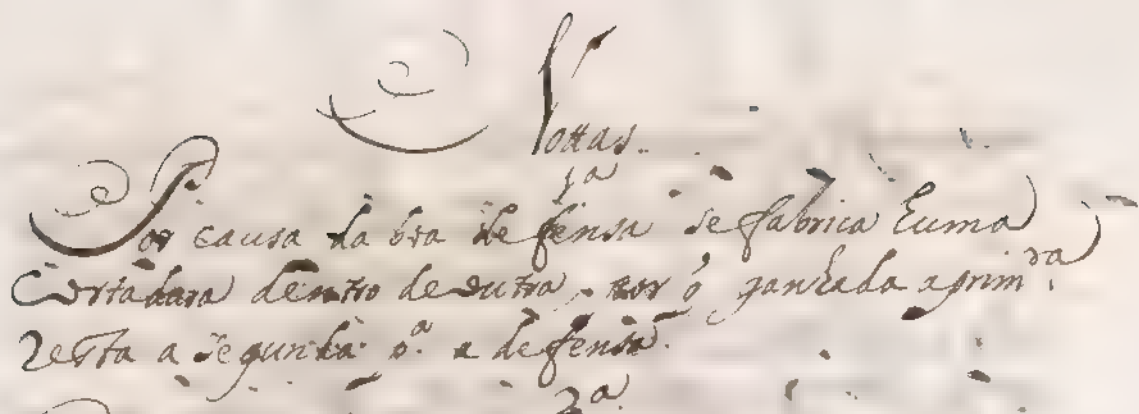 Nottas.
1ª
Por causa da boa defensa se fabrica huma
Cortadura dentro de outra, por q̃ ganhada a prim.ra
Resta a segunda p.ª a defensa.
2ª